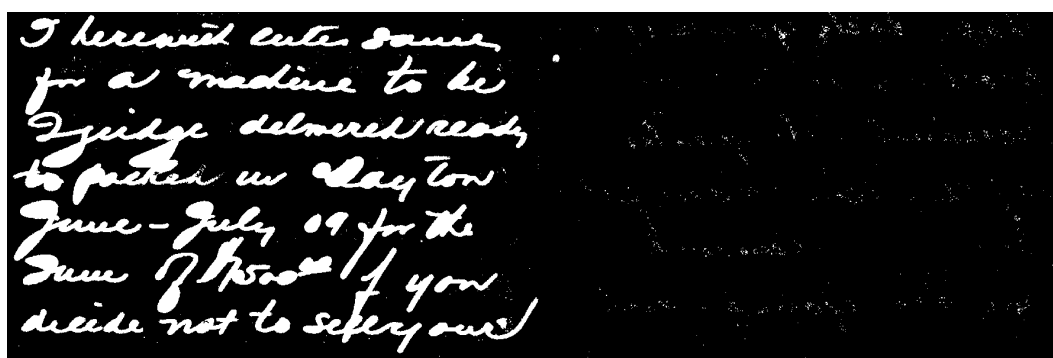 I herewith enter same
for a machine to be
I judge delivered ready
to packed in Dayton
June - July 09 for the
sum of $7500⁰⁰ if you
decide not to sell your